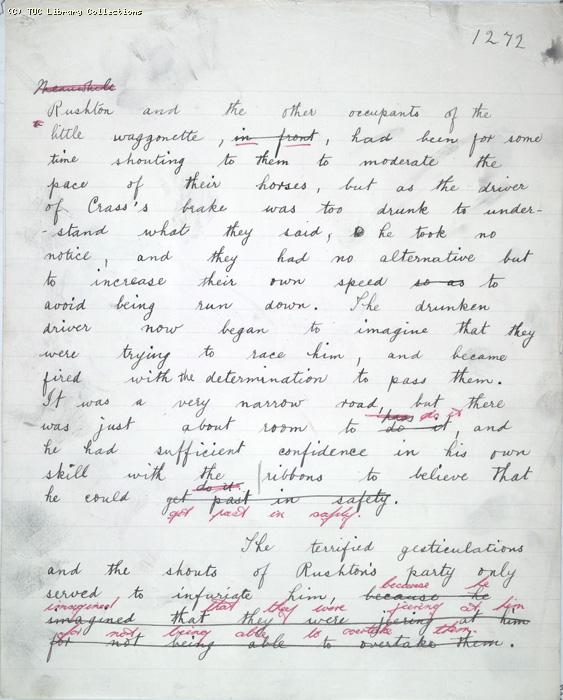 (C) TUC Library Collections
1272
Meanwhile
Rushton and the other occupants of the
little waggonette, in front, had been for some
time shouting to them to moderate the
pace of their horses, but as the driver
of Crass's brake was too drunk to under-
-stand what they said, he took no
notice, and they had no alternative but
to increase their own speed so as to
avoid being run down. The drunken
driver now began to imagine that they
were trying to race him, and became
fired with the determination to pass them.
It was a very narrow road, but there
pass do it
was just about room to do it, and
he had sufficient confidence in his own
skill with the ribbons to believe that
do it.
he could get past in safety.
get past in safety.
The terrified gesticulations
and the shouts of Rushton's party only
because he
served to infuriate him, because he
imagined that they were jeering at him
imagined that they were jeering at him
for not being able to overtake them.
for not being able to overtake them.